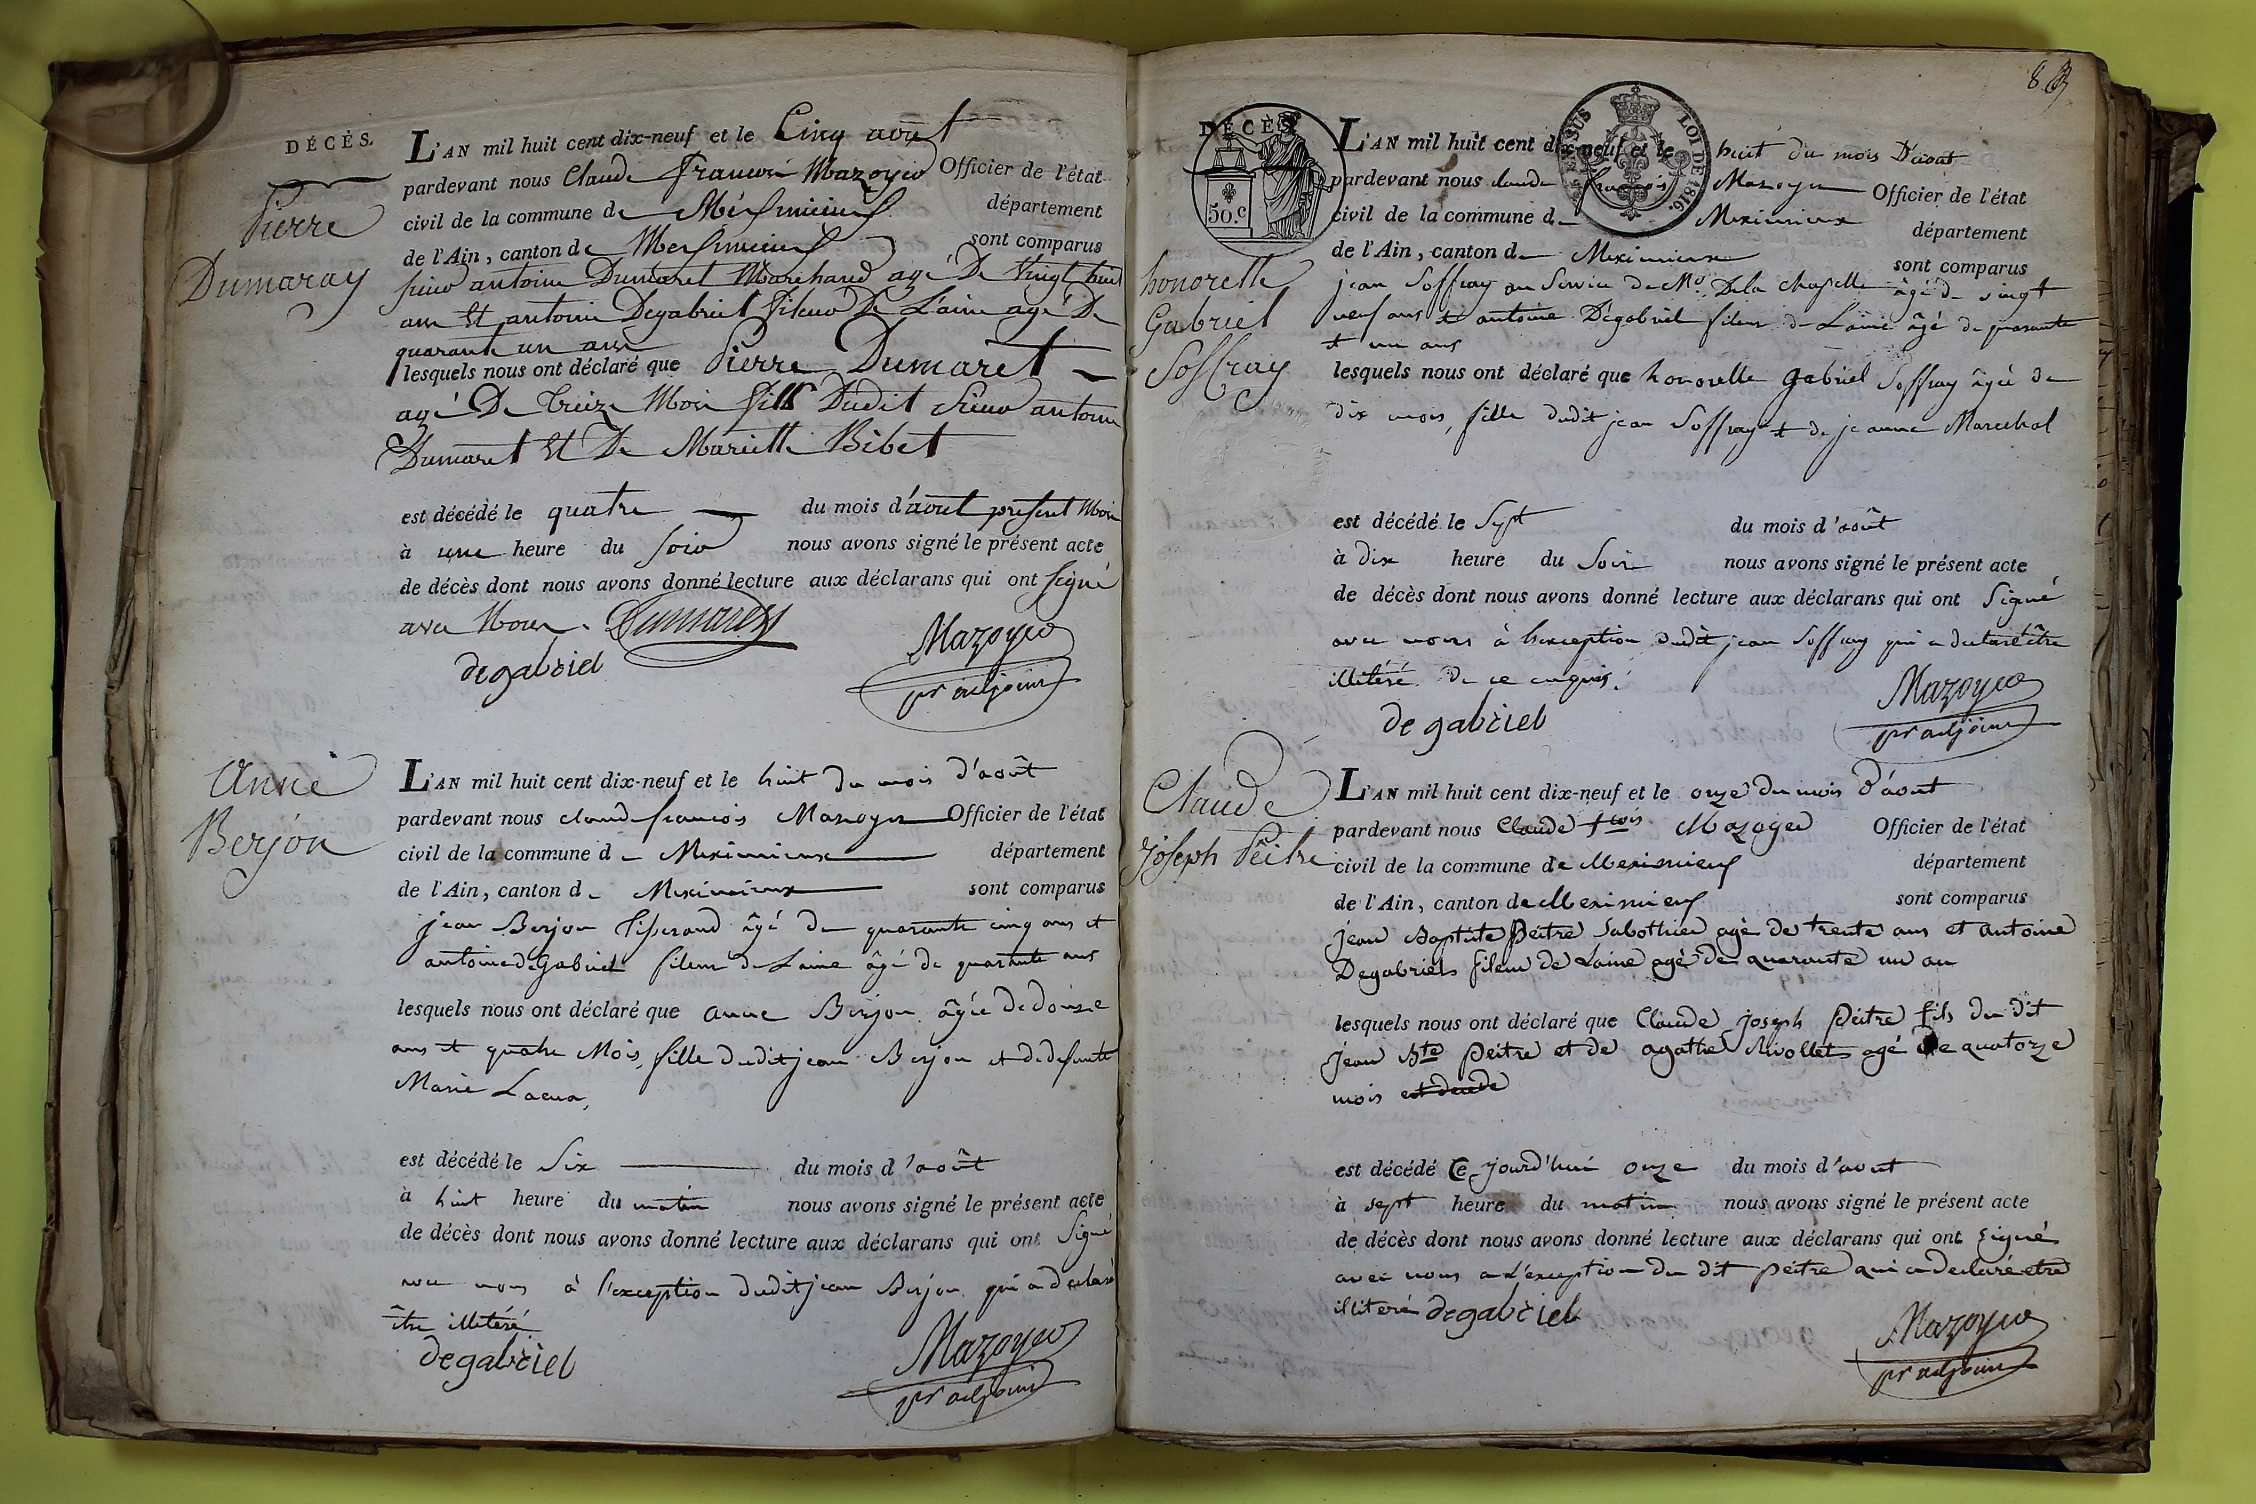 DÉCÈS.
Pierre
Dumaray
L'AN mil huit cent dix-neuf et le Cinq aout
pardevant nous Claude françois Mazoyer Officier de l'état
civil de la commune de Meximieux département
de l'Ain, canton de Meximieux sont comparus
sieur antoine Dumaret Marchand agé De vingt huit
ans Et antoine Degabriel fileur De Laine agé De
quarante un ans
lesquels nous ont déclaré que Pierre Dumaret
agé De treize Mois fils Dudit sieur antoine
Dumaret Et De Mariette Bibet
est décédé le quatre du mois d'aout present Mois
à une heure du soir nous avons signé le présent acte
de décès dont nous avons donné lecture aux déclarans qui ont signé
avec Nous. Dumarest
degabriel
Mazoyer
pr adjoint
Anne
Berjon
L'AN mil huit cent dix-neuf et le huit du mois d'août
pardevant nous claude francois Mazoyer Officier de l'état
civil de la commune de Meximieux département
de l'Ain, canton de Meximieux sont comparus
jean Berjon tisserand âgé de quarante cinq ans et
antoine de Gabriel fileur de Laine âgé de quarante ans
lesquels nous ont déclaré que anne Berjon âgée de douze
ans et quatre Mois, fille dudit jean Berjon et de defunte
Marie
est décédé le Six du mois d'août
à huit heure du matin nous avons signé le présent acte
de décès dont nous avons donné lecture aux déclarans qui ont Signé
avec nous à l'exception dudit jean Berjon qui a declaré
être illitéré
degabriel
Mazoyer
pr adjoint
83
DÉCÈS.
50.c
LOI DE 1816.
honorette
Gabriel
Soffray
L'AN mil huit cent dix-neuf et le huit du mois D'aout
pardevant nous claude françois Mazoyer Officier de l'état
civil de la commune de Meximieux département
de l'Ain, canton de Meximieux sont comparus
jean Soffray au Service de Mr. Dela chapelle âgé de vingt
neuf ans et antoine Dégabriel fileur de Laine âgé de quarante
et un ans
lesquels nous ont déclaré que honorette gabriel Soffray âgée de
dix mois, fille dudit jean Soffray et de jeanne Marechal
est décédé le Sept du mois d'août
à dix heure du Soir nous avons signé le présent acte
de décès dont nous avons donné lecture aux déclarans qui ont Signé
avec nous à l'exception dudit jean Soffray qui a declaré être
illitéré de ce enquis.
de gabriel
Mazoyer
pr adjoint
Claude
joseph Pêitre
L'AN mil huit cent dix-neuf et le onze du mois d'aout
pardevant nous Claude fcois Mazoyer Officier de l'état
civil de la commune de Meximieux département
de l'Ain, canton de Meximieux sont comparus
Jean Baptiste Peitre Sabothier agé de trente ans et antoine
Degabriels fileur de Laine agé de quarante un an
lesquels nous ont déclaré que Claude joseph Peitre fils du dit
Jean Bte Peitre et de agathe Rivollet agé de quatorze
mois est décédé
est décédé Ce jourd'hui onze du mois d'aout
à sept heure du matin nous avons signé le présent acte
de décès dont nous avons donné lecture aux déclarans qui ont signé
avec nous a l'exception du dit Peitre qui a declaré etre
illiteré degabriel
Mazoyer
pr adjoint